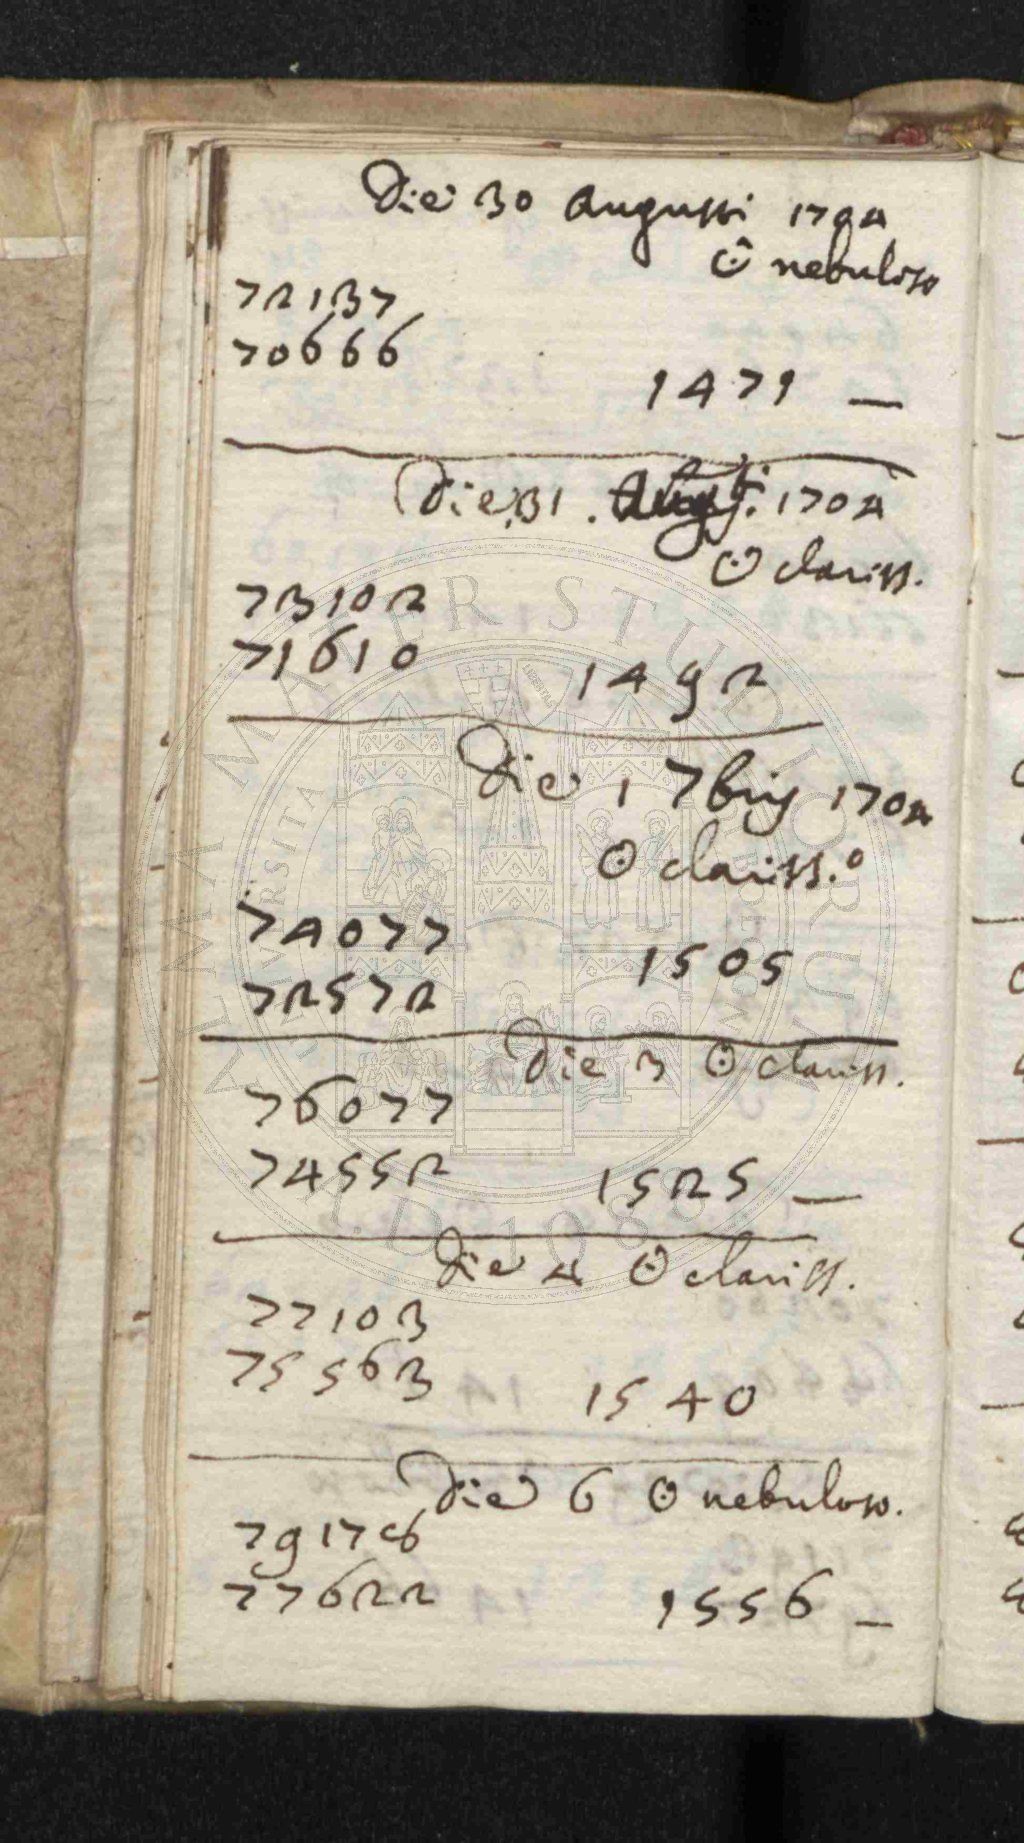 Die 30 Augusti 1704
☉ nebuloso
72137
70666
1471 —
Die 31. Augsti. 1704
☉ clariss.
73102
71610
1492
Die 1 7bris 1704
☉ clariss.º
74077
1505
72572
Die 3 ☉ clariss.
76077
74552
1525 —
Die 4 ☉ clariss.
77103
75563
1540
Die 6 ☉ nebuloso.
79178
77622
1556 —
ALMA MATER STUDIORUM
A.D. 1088